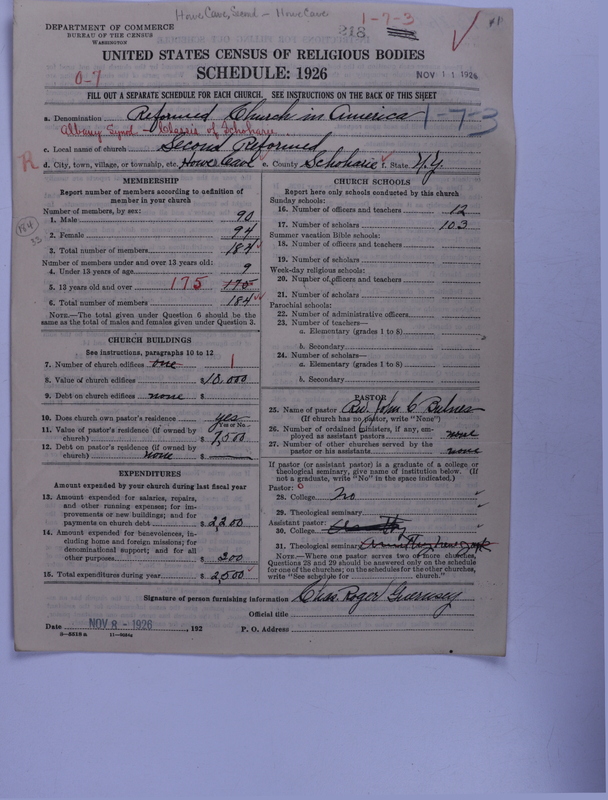 Howe Cave, Second - Howe Cave
DEPARTMENT OF COMMERCE
BUREAU OF THE CENSUS
WASHINGTON
218
1-7-3
#1
UNITED STATES CENSUS OF RELIGIOUS BODIES
SCHEDULE: 1926
0-7
NOV 11 1926
FILL OUT A SEPARATE SCHEDULE FOR EACH CHURCH. SEE INSTRUCTIONS ON THE BACK OF THIS SHEET
a. Denomination Reformed Church in America
1-7-3
Albany Synod - Classis of Schoharie
c. Local name of church Second Reformed
R
d. City, town, village, or township, etc. Howe Cave e. County Schoharie f. State N.Y.
MEMBERSHIP
Report number of members according to definition of
member in your church
Number of members, by sex:
1. Male 90
2. Female 94
3. Total number of members 184
184
33
Number of members under and over 13 years old:
4. Under 13 years of age 9
5. 13 years old and over 175 170
6. Total number of members 184
NOTE.—The total given under Question 6 should be the
same as the total of males and females given under Question 3.
CHURCH BUILDINGS
See instructions, paragraphs 10 to 12
7. Number of church edifices one 1
8. Value of church edifices $10,000
9. Debt on church edifices none $
10. Does church own pastor's residence yes
Yes or No
11. Value of pastor's residence (if owned by
church) $ 7,000
12. Debt on pastor's residence (if owned by
church) none $
EXPENDITURES
Amount expended by your church during last fiscal year
13. Amount expended for salaries, repairs,
and other running expenses; for im-
provements or new buildings; and for
payments on church debt $ 2,200
14. Amount expended for benevolences, in-
cluding home and foreign missions; for
denominational support; and for all
other purposes $ 300
15. Total expenditures during year $ 2,500
CHURCH SCHOOLS
Report here only schools conducted by this church
Sunday schools:
16. Number of officers and teachers 12
17. Number of scholars 103
Summer vacation Bible schools:
18. Number of officers and teachers
19. Number of scholars
Week-day religious schools:
20. Number of officers and teachers
21. Number of scholars
Parochial schools:
22. Number of administrative officers
23. Number of teachers—
a. Elementary (grades 1 to 8)
b. Secondary
24. Number of scholars—
a. Elementary (grades 1 to 8)
b. Secondary
PASTOR
25. Name of pastor Rev. John C
(If church has no pastor, write "None")
26. Number of ordained ministers, if any, em-
ployed as assistant pastors none
27. Number of other churches served by the
pastor or his assistants none
If pastor (or assistant pastor) is a graduate of a college, or
theological seminary, give name of institution below. (If
not a graduate, write "No" in the space indicated.)
Pastor:
28. College No
29. Theological seminary
Assistant pastor:
30. College
31. Theological seminary
NOTE.—Where one pastor serves two or more churches,
Questions 28 and 29 should be answered only on the schedule
for one of the churches; on the schedules for the other churches,
write "See schedule for church."
Signature of person furnishing information Chas. Roger Guernsey
Official title
Date NOV 8 - 1926 , 192 P. O. Address